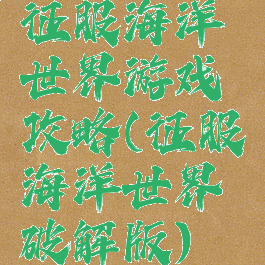 征服海洋
世界游戏
攻略(征服
海洋世界
破解版)